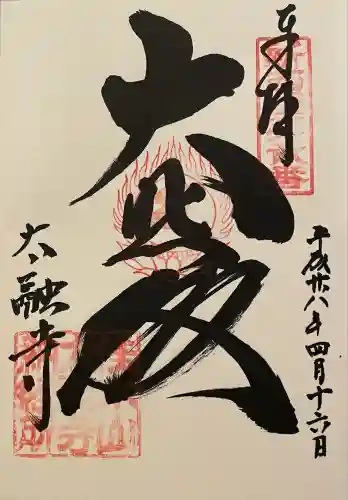 奉拝
平成廿八年四月十六日
大悲殿
太融寺